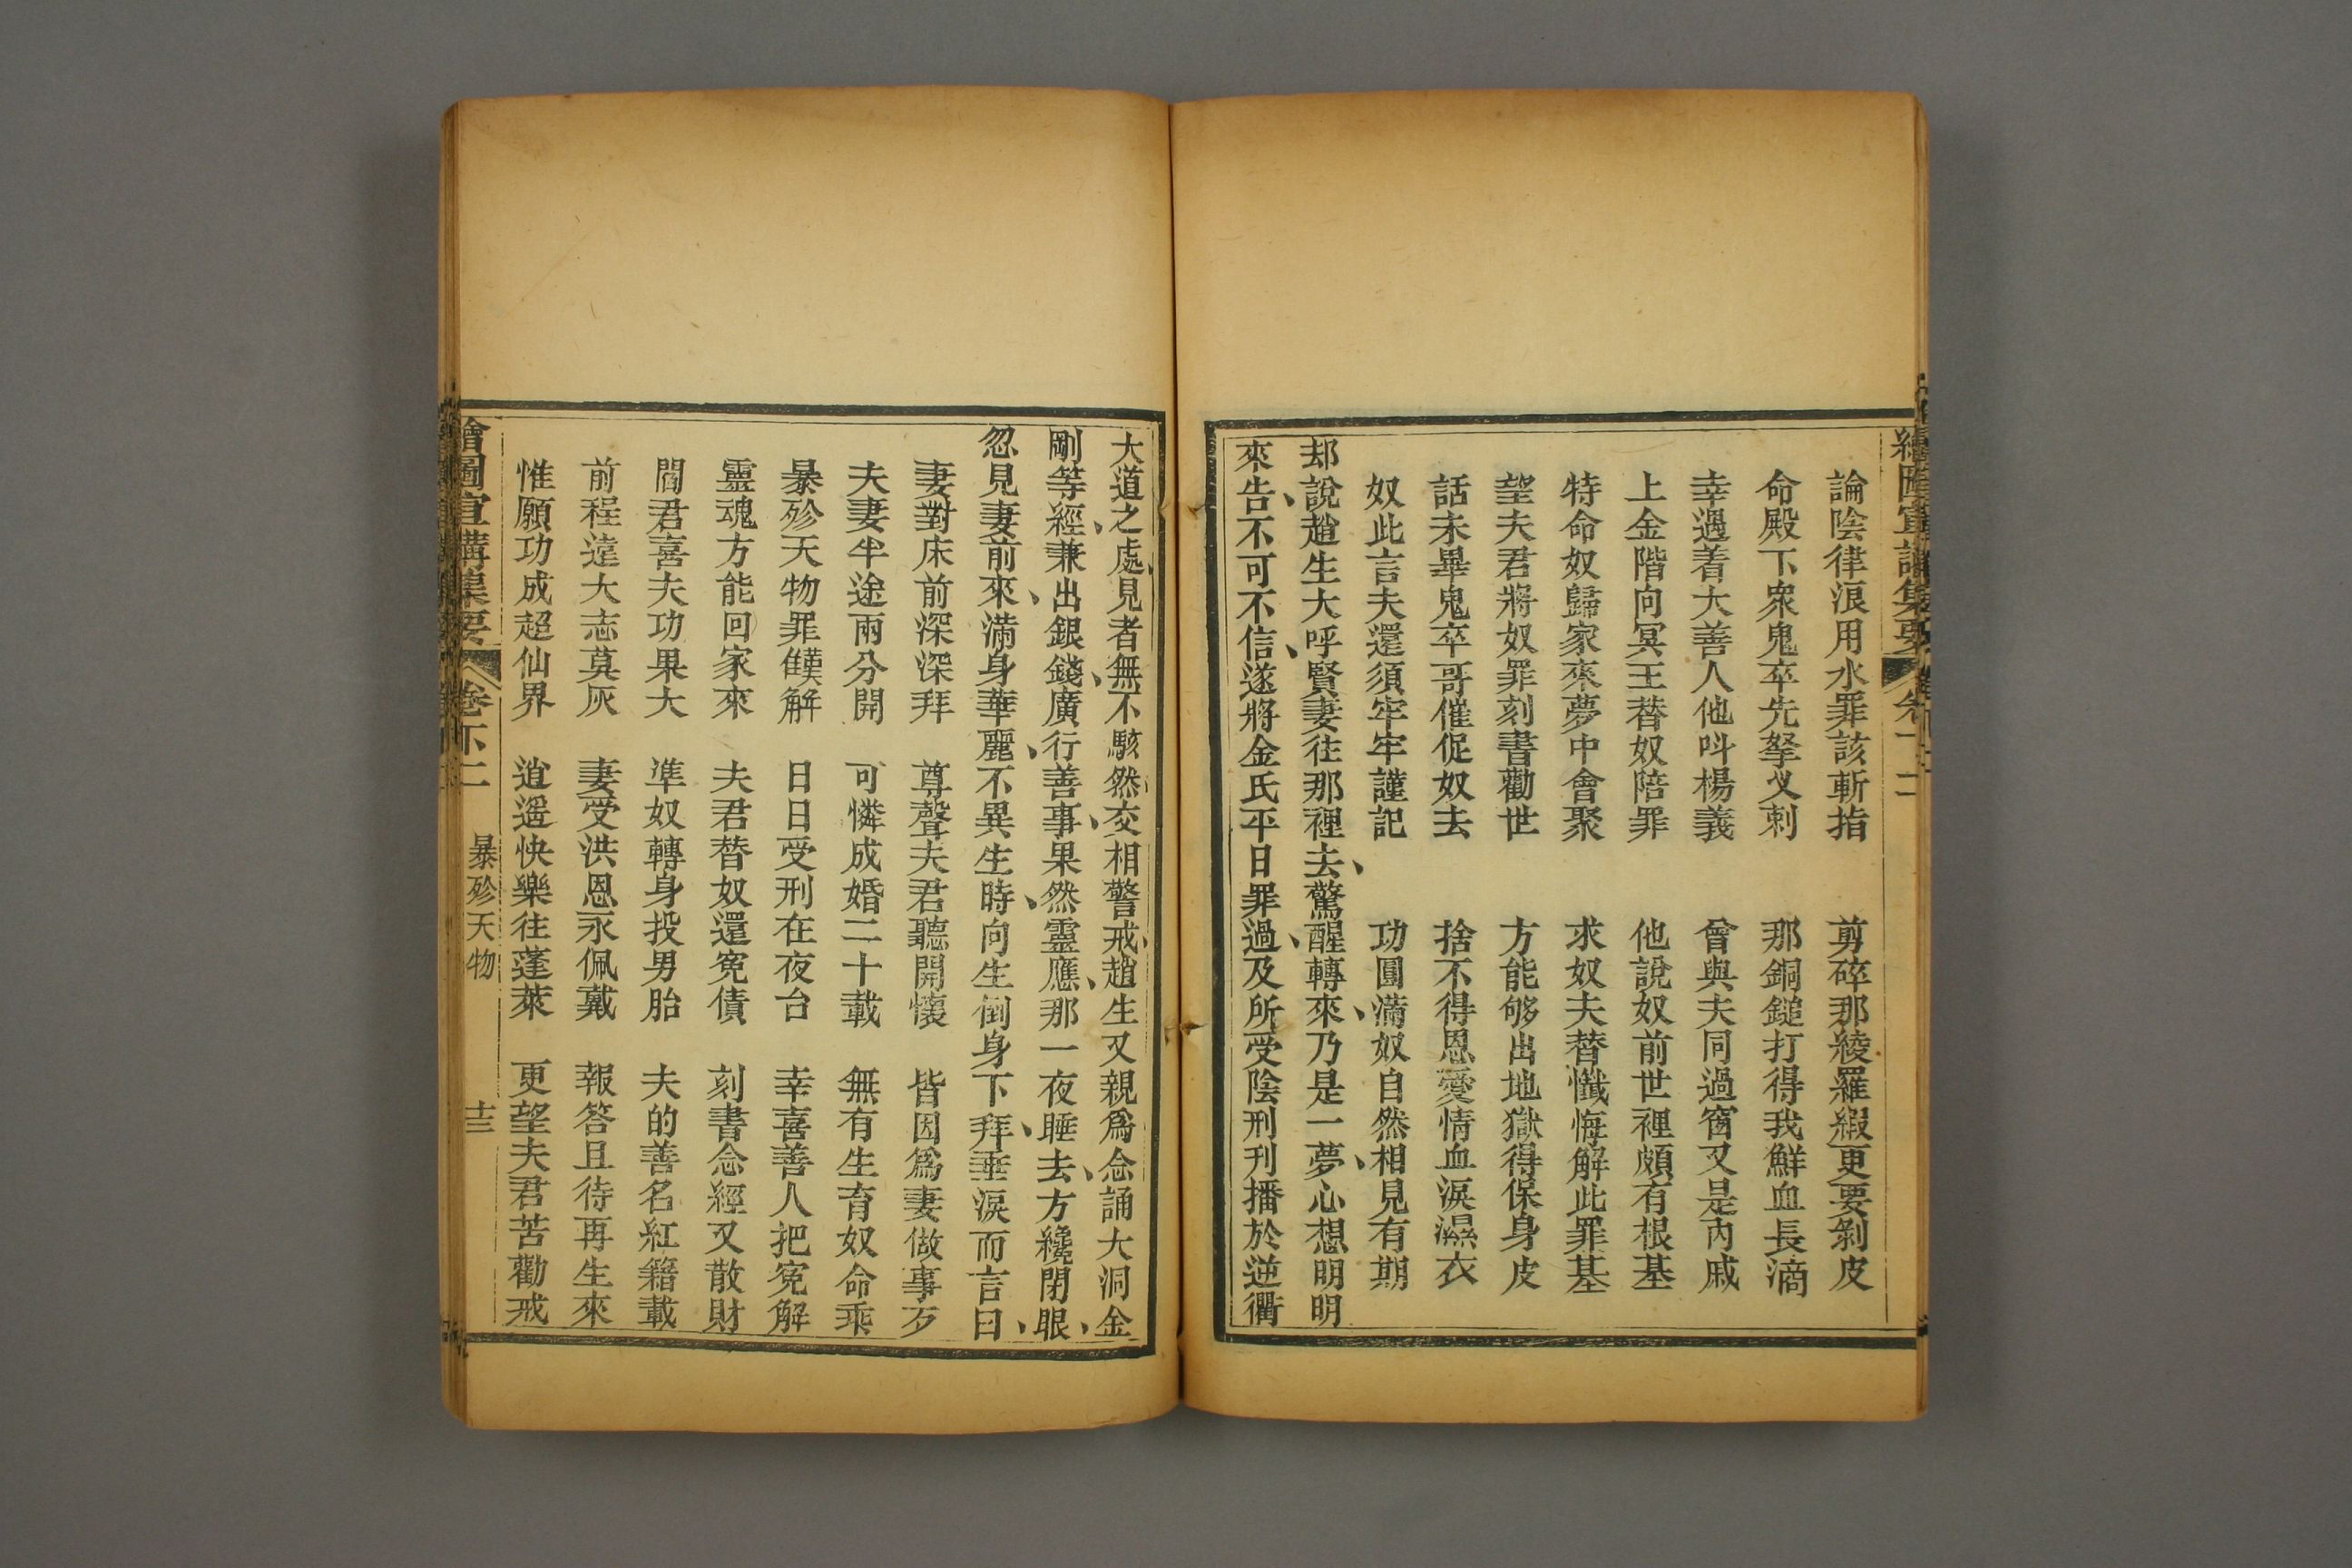 論陰律浪用水罪該斬指　剪碎那綾羅緞更要剝皮
命殿下衆鬼卒先拏义刺　那銅鎚打得我鮮血長滴
幸遇着大善人他呌楊義　曾與夫同過窗又是內戚
上金階向冥王替奴陪罪　他說奴前世裡頗有根基
特命奴歸家來夢中會聚　求奴夫替懺悔解此罪基
望夫君將奴罪刻書勸世　方能够出地獄得保身皮
話未畢鬼卒哥催促奴去　捨不得恩愛情血淚濕衣
奴此言夫還須牢牢謹記　功圓滿奴自然相見有期
却說趙生大呼賢妻往那裡去、驚醒轉來、乃是一夢、心想明明
來告、不可不信、遂將金氏平日罪過、及所受陰刑刋播於逆衢
大道之處、見者無不駭然、交相警戒、趙生又親爲念誦大洞金
剛等經、兼出銀錢、廣行善事、果然靈應、那一夜睡去、方纔閉眼、
忽見妻前來、滿身華麗、不異生時、向生倒身下拜、垂淚而言曰、
妻對床前深深拜　尊聲夫君聽開懷　皆因爲妻做事歹
夫妻半途兩分開　可憐成婚二十載　無有生育奴命乖
暴殄天物罪難解　日日受刑在夜台　幸喜善人把寃解
靈魂方能回家來　夫君替奴還寃債　刻書念經又散財
閻君喜夫功果大　準奴轉身投男胎　夫的善名紅籍載
前程遠大志莫灰　妻受洪恩永佩戴　報答且待再生來
惟願功成超仙界　逍遥快樂往蓬萊　更望夫君苦勸戒
繪圖宣講集要　卷下二　暴殄天物　十三